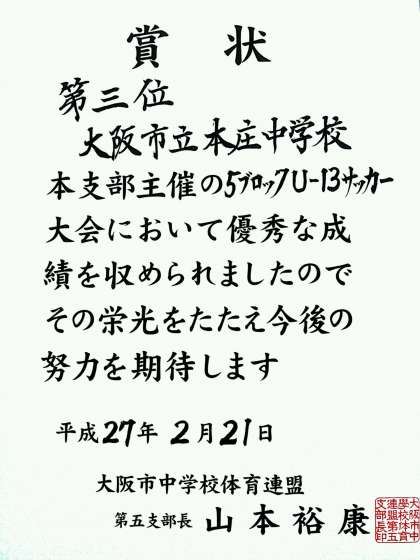 賞状
第三位
大阪市立本庄中学校
本支部主催の5ブロックU-13サッカー
大会において優秀な成
績を収められましたので
その栄光をたたえ今後の
努力を期待します
平成27年2月21日
大阪市中学校体育連盟
第五支部長 山本裕康
大阪市中
學校体育
連盟第五
支部長印